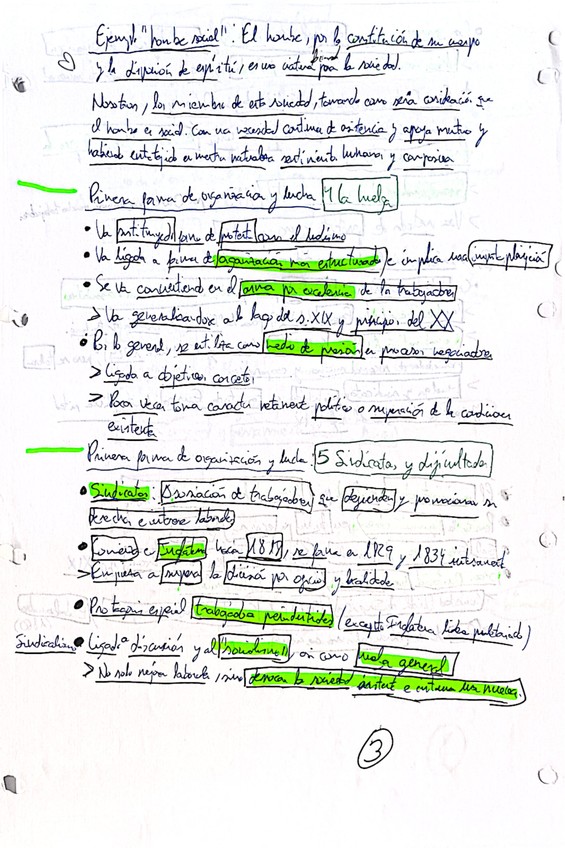 Ejemplo "hombre social": El hombre, por la constitución de su cuerpo
y la disposición de espíritu, es una natural para la sociedad.
Nosotros, los miembro de esta sociedad, tomando como seña consideración que
el hombre es social. Con una necesidad continua de asistencia y apoyo mutuo y
habiendo entretejido en nuestra naturaleza sentimientos humanos y
Primera forma de organización y lucha 4 la huelga
• Va sustituyendo forma de protesta como el ludismo
• Va ligada a formas de organización más estructurada e implica una
• Se va convirtiendo en el arma por excelencia de los trabajadores
> Va generalizandose a lo largo del s. XIX y principios del XX
• Por lo general, se utiliza como medio de presión en procesos negociadores
> Ligada a objetivos concretos
> Pocas veces toma caracter netamente político o superación de las condiciones
existentes
Primera forma de organización y lucha: 5 Sindicatos y dificultades
• Sindicatos: Asociación de trabajadores que defienden y promocionan sus
derechos e interese laborales
• Comienza e Inglaterra hacia 1818, se forma en 1829 y 1834
> Empieza a superar la división por oficio y localidade
• Protagonismo especial trabajadores (excepto Inglaterra
Sindicalismo • Ligado a discusión y al "socialismo", así como huelga general
> No solo mejora laborales, sino derrocar la sociedad existente e instaurar una nueva.
3